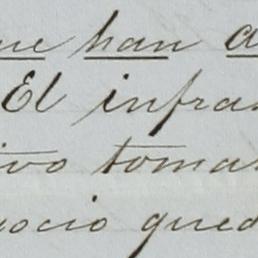 ue han a
El infras
ivo tomar
ocio qued